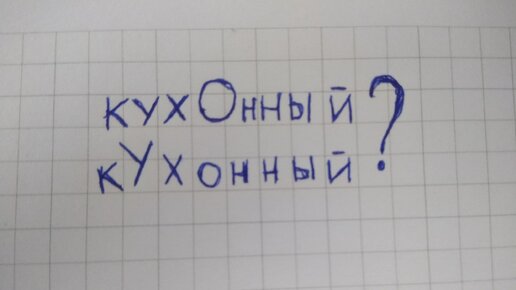 кухОнный?
кУхонный